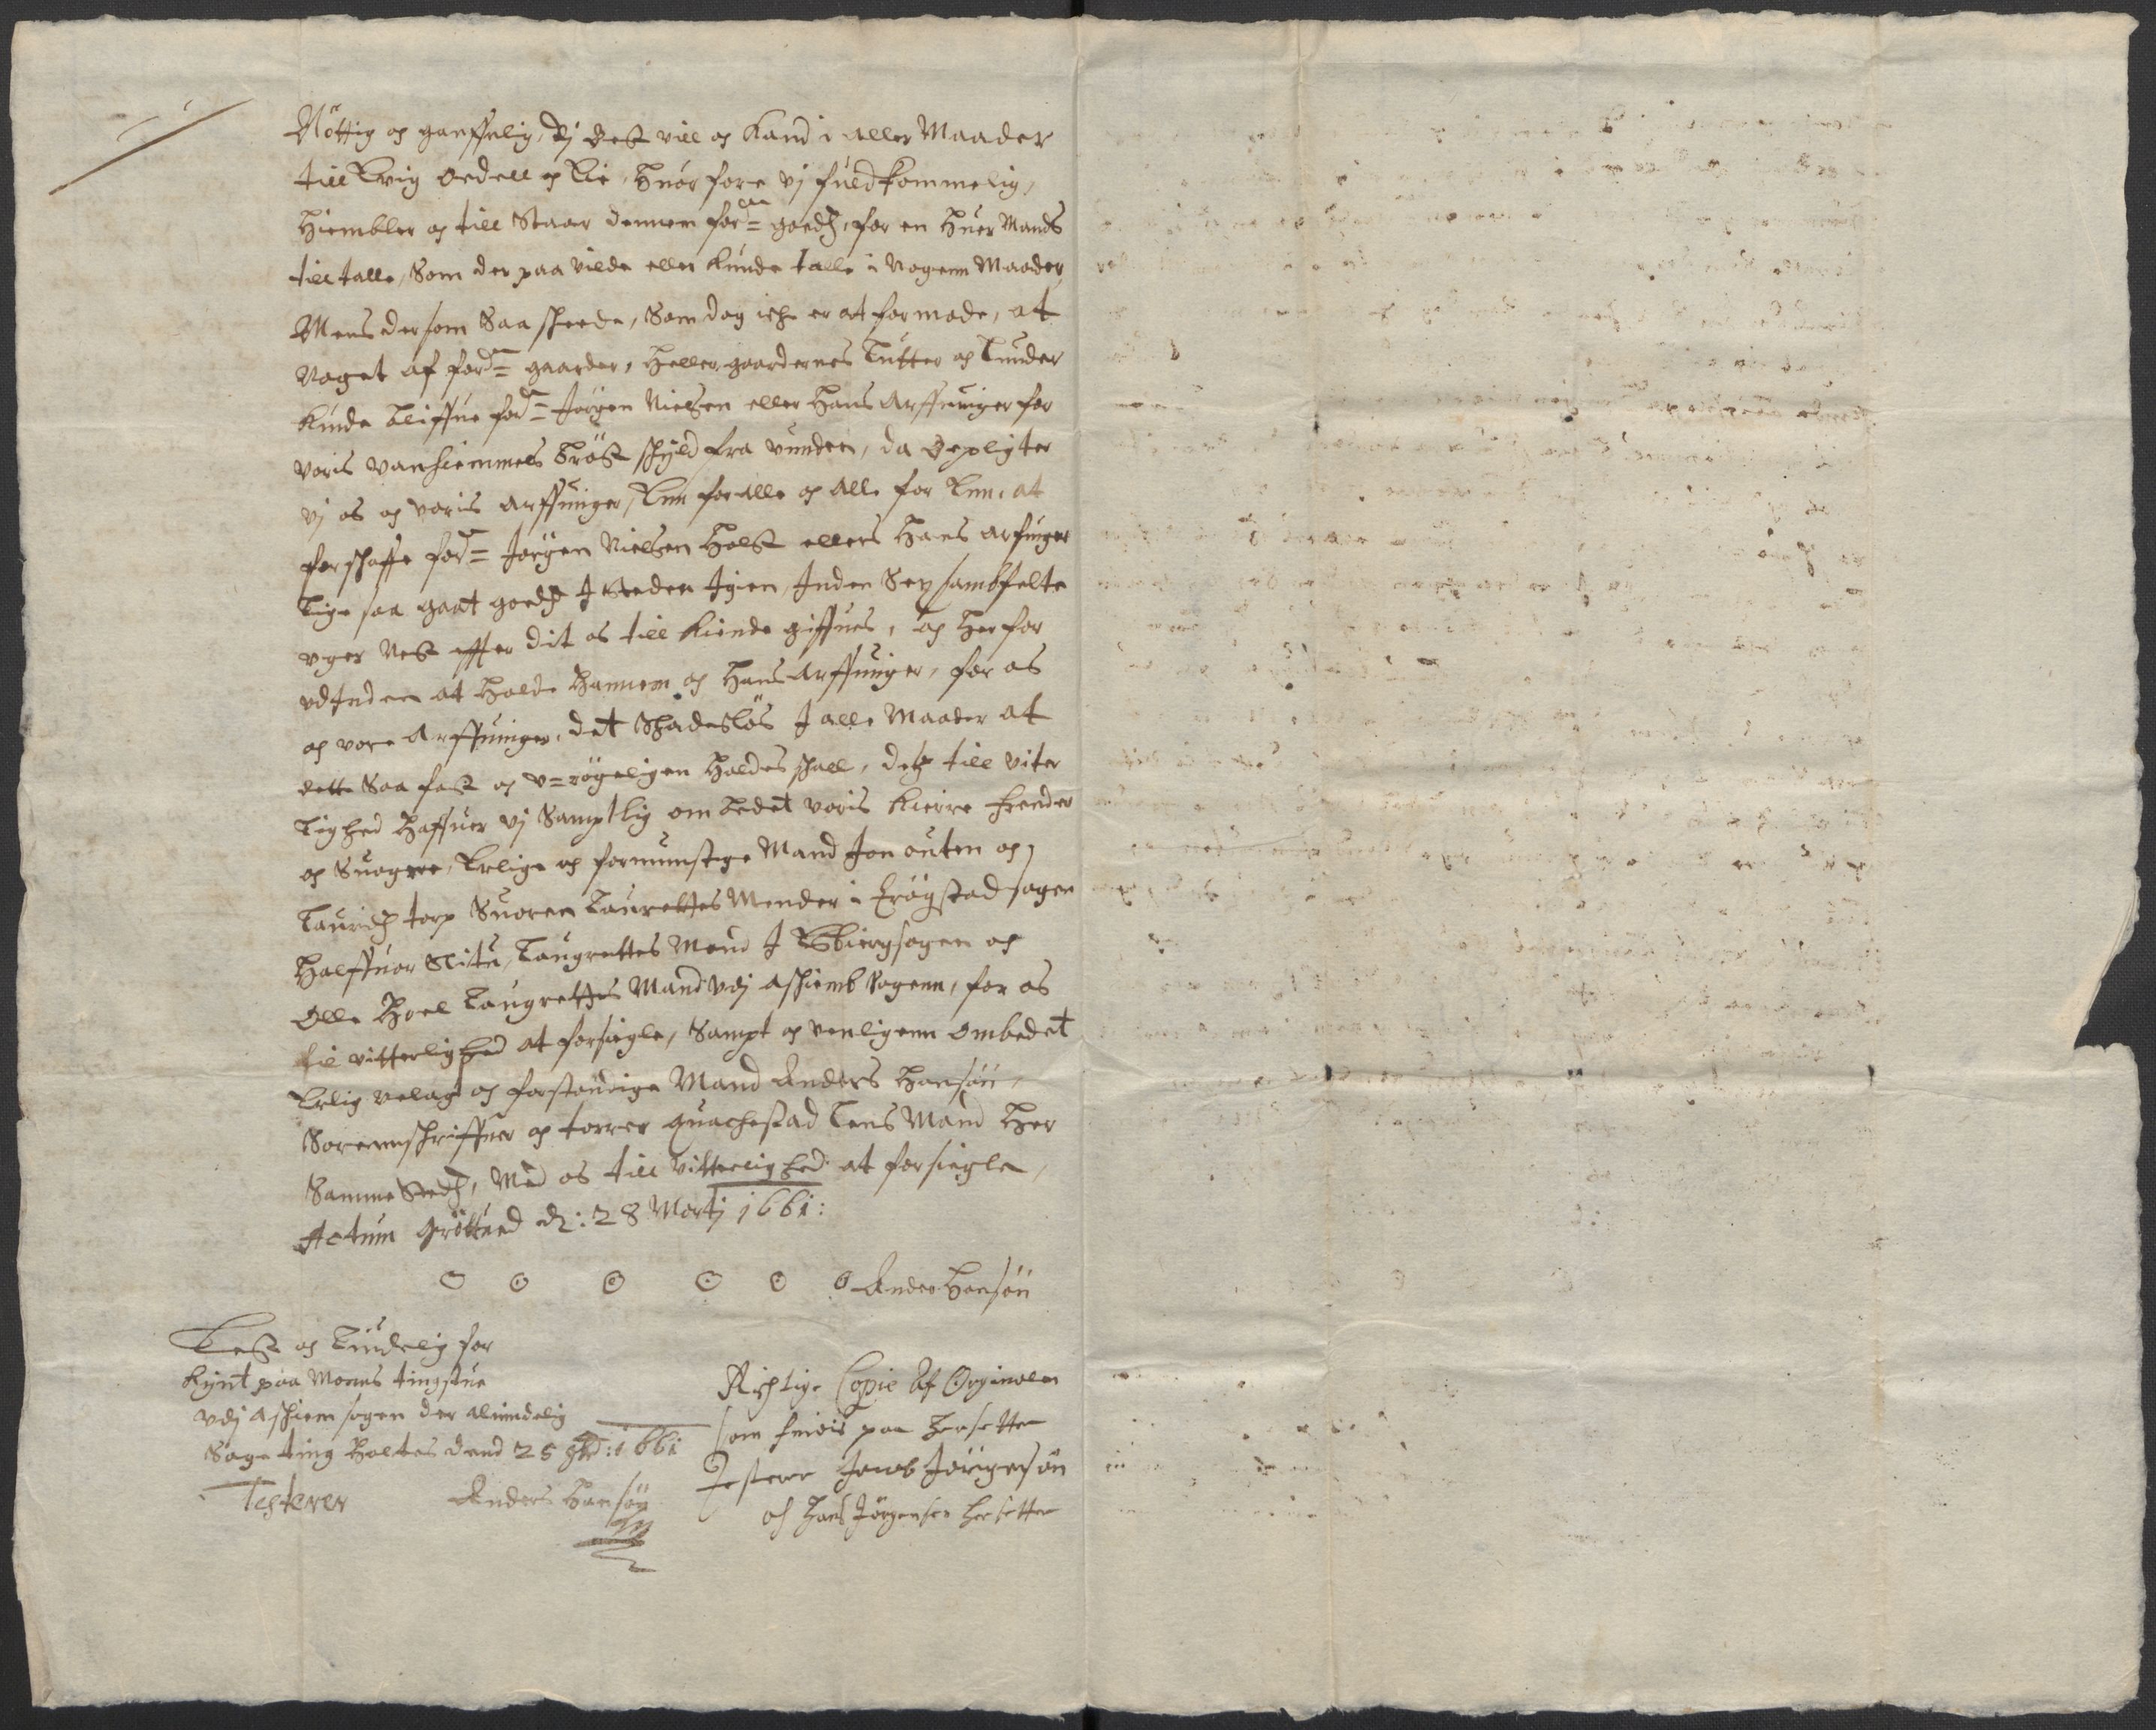 Nöttig og gansfulig, Dj Best vill og Kand i aller Maader
till Evig Oedell og Eie, Huor fore vj fuldkommelig,
Hiembler og till Staar dennem ford= goedz, for en Huer Mands
till talle, Som der paa vilde eller Kunde talle i Nogenn Maader,
Mens dersom Saa skeede, Som dog iche er at formode, at
Noget af ford= gaarder, Heller gaardernes Lutter og Lunder
Kunde bliffue ford= Jörgen Nielsen eller Hans Arffuinger for
voris vanhiemmels bröst skyld fra vunden, da Depligter
vj os og voris Arffuinger, Een for alle og Alle for Een, at
forschaffe ford= Jörgen Nielsen Holst ellers Hans arfuinger
Lige saa gaat goedz J Steden Jgien, Inden Sex sambfelte
vger Nest effter dit os till Kiende giffues, og Her for
vdInden at Holde Hannem og Hans Arffuinger, for os
og vore Arffuinger, det Schadeslös J alle Maader at
dette Saa fast og v=rögeligen Holdes schall, detz till viter
Lighed Haffuer vj Samptlig ombedet voris Kierre frender
og Suogere, Erlige og fornumstige Mand Jon outen og
Lauridz torp Suoren Laurettes Mender i Erögstad sogen
Halffuor Slitu, Laugrettes Mand J Esbiergsogen og
Olle Hoel Laugrettes Mand vdj Aschiemb Sogenn, for os
til vitterlighed at forsiegle, Sampt og venligenn Ombedet
Erlig velagt og forstandige Mand Anders Hansön,
Sorennschriffuer og torrer guachestad Lens Mand Her
Samme Stedz, Med os till Vitterlighed at forsiegle,
Actum gröttued d: 28 Martj 1661:
Ander Hansön
Lest og Liudelig for
Kynt paa Moens tingstue
vdj Aschiem sogen der almindelig
Sage ting Holtes dend 25 : 1661
Testerer Anders Hansön
Richtige Copie Af Orginalen
som finis paa Hersetter
Testerer Jacob Jörgensön
og Hans Jörgensen Hersetter